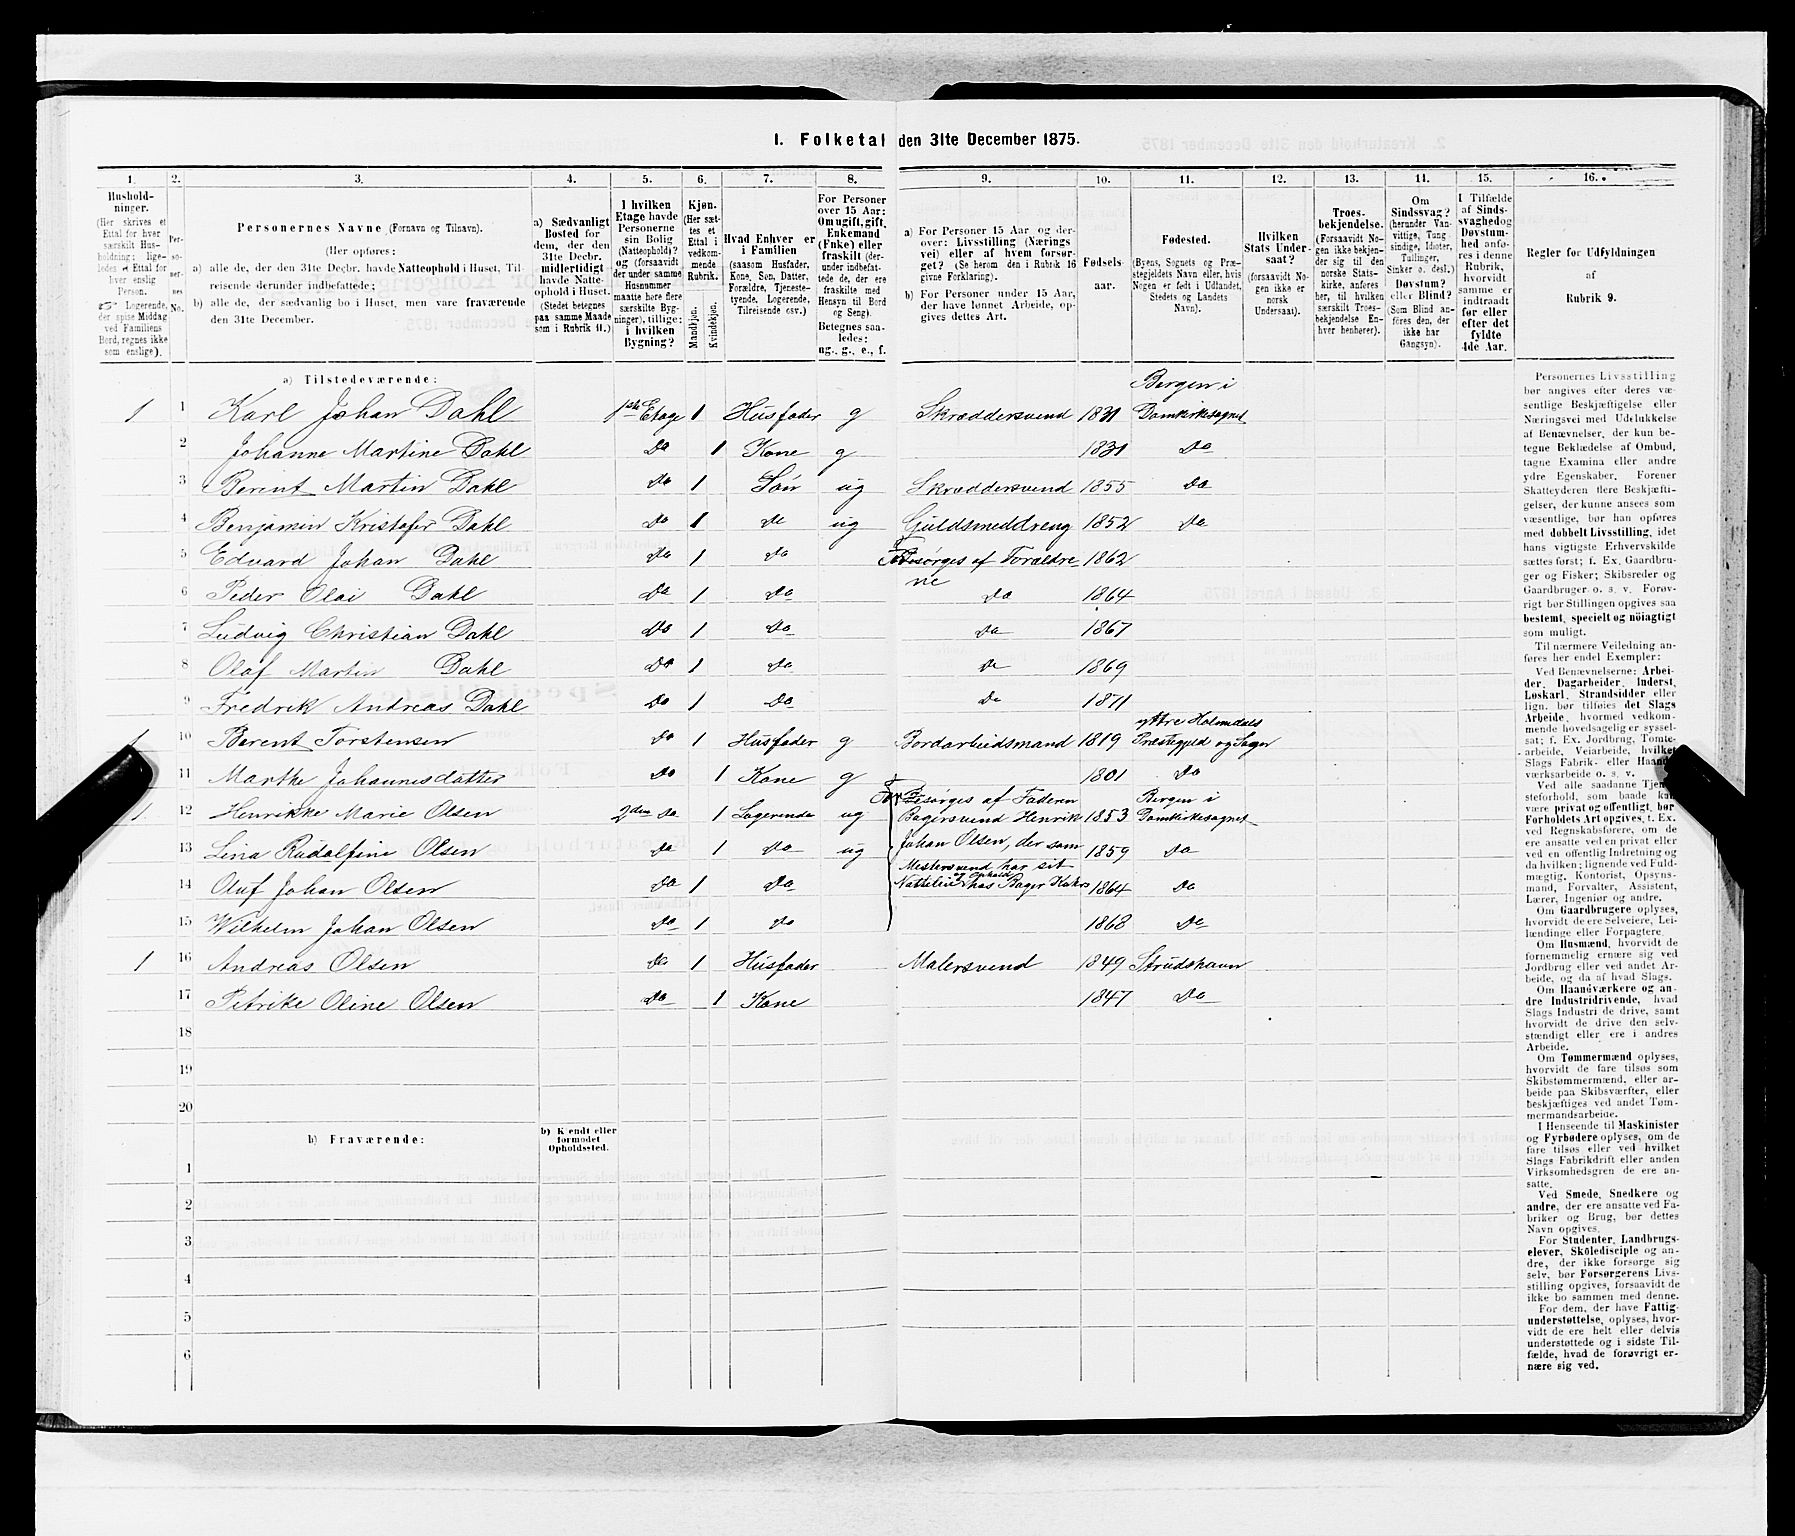 I. Folketal den 31te December 1875.
1. 2. 3. 4. 5. 6. 7. 8. 9. 10. 11. 12. 13. 14. 15. 16.
Husholdninger.
(Her skrives et
Ettal for hver
særskilt Hus-
holdning; lige-
ledes et Ettal for
hver enslig
Person.
Logerende,
der spise Middag
ved Familiens
Bord, regnes ikke
som enslige).
Personernes No.
Personernes Navne (Fornavn og Tilnavn).
(Her opføres:
a) alle de, der den 31te Decbr. havde Natteophold i Huset, Til-
reisende derunder indbefattede;
b) alle de, der sædvanlig bo i Huset, men vare fraværende
den 31te December.
a) Sædvanligt
Bosted for
dem, der den
31te Decbr.
midlertidigt
havde Natte-
ophold i Huset.
(Stedet betegnes
paa samme Maade
som i Rubrik 11.)
I hvilken
Etage havde
Personerne
sin Bolig
(Natteophold)?
og (forsaavidt
der under samme
Husnummer
maatte høre flere
særskilte Byg-
ninger), tillige:
i hvilken
Bygning?
Kjøn.
(Her sæt-
tes et
Ettal i
vedkom-
mende
Rubrik.)
Mandkjøn.
Kvindekjøn.
Hvad Enhver er
i Familien
(saasom Husfader,
Kone, Søn, Datter,
Forældre, Tjeneste-
tyende, Logerende,
Tilreisende osv.)
For Personer
over 15 Aar:
Om ugift, gift,
Enkemand
(Enke) eller
fraskilt (der-
under indbefat-
tede de, der ere
fraskilte med
Hensyn til Bord
og Seng).
Betegnes saa-
ledes:
ug., g., e., f.
a) For Personer 15 Aar og der-
over: Livsstilling (Nærings
vei) eller af hvem forsør-
get? (Se herom den i Rubrik 16
givne Forklaring).
b) For Personer under 15 Aar,
der have lønnet Arbeide, op-
gives dettes Art.
Fødsels-
aar.
Fødested.
(Byens, Sognets og Præ-
stegjeldets Navn eller, hvis
Nogen er født i Udlandet,
Stedets og Landets
Navn).
Hvilken
Stats Under-
saat?
(forsaavidt No-
gen ikke er
norsk
Undersaat).
Troes-
bekjendelse.
(Forsaavidt No-
gen ikke bekjen-
der sig til den
norske Stats-
kirke, anføres
her, til hvilken
særskilt Troes-
bekjendelse En-
hver henhører).
Om
Sindssvag?
(herunder Van-
vittige, Tung-
sindige, Idioter,
Tullinger,
Sinker o. desl.)
Døvstum?
eller Blind?
(Som Blind an-
føres den, der
ikke har
Gangsyn).
I Tilfælde
af Sinds-
svaghed og
Døvstum-
hed anfø-
res i denne
Rubrik,
hvorvidt
samme er
indtraadt
før eller
efter det
fyldte
4de Aar.
Regler for Udfyldningen
af
Rubrik 9.
a) Tilstedeværende:
1 1 Karl Johan Dahl 1ste Etage 1 Husfader g Skræddersvend 1831 Bergen i Domkirkesognet
2 Johanne Martine Dahl Do 1 Kone g 1831 Do
3 Berent Martin Dahl Do 1 Søn ug Skræddersvend 1855 Do
4 Benjamin Kristofer Dahl Do 1 Do ug Guldsmeddreng 1852 Do
5 Edvard Johan Dahl Do 1 Do Forsørges af Forældrene 1862
6 Peder Olai Dahl Do 1 Do Do 1864
7 Ludvig Christian Dahl Do 1 Do Do 1867
8 Olaf Martin Dahl Do 1 Do Do 1869
9 Fredrik Andreas Dahl Do 1 Do Do 1871
1 10 Berent Torstensen Do 1 Husfader g Bordarbeidsmand 1819 yttre Holmdals Præstegjeld og Sogn
11 Marthe Johannesdatter Do 1 Kone g 1801 Do
1 12 Henrikke Marie Olsen 2den Do 1 Logerende ug Forsørges af Faderen Bagersvend Henrik 1853 Bergen i Domkirkesognet
13 Lina Rudolfine Olsen Do 1 Do ug Johan Olsen, der som 1859 Do
14 Oluf Johan Olsen Do 1 Do Mestersvend har sit Natteliv og Ophold hos Bager 1864 Do
15 Wilhelm Johan Olsen Do 1 Do 1868 Do
1 16 Andreas Olsen Do 1 Husfader Malersvend 1849 Strudshavn
17 Petrike Oline Olsen Do 1 Kone 1847 Do
18
19
20
b) Fraværende:
b) Kjendt eller
formodet
Opholdssted.
1
2
3
4
5
6
Personernes Livsstilling
bør angives efter deres væ-
sentlige Beskjæftigelse eller
Næringsvei med Udelukkelse
af Benævnelser, der kun be-
tegne Beklædelse af Ombud,
tagne Examina eller andre
ydre Egenskaber. Forener
Skatteyderen flere Beskjæfti-
gelser, der kunne ansees som
væsentlige, bør han opføres
med dobbelt Livsstilling, idet
hans vigtigste Erhvervskilde
sættes først; f. Ex. Gaardbru-
ger og Fisker; Skibsreder og
Gaardbruger o. s. v. Forøv-
rigt bør Stillingen opgives saa
bestemt, specielt og nöiagtigt
som muligt.
Til nærmere Veiledning an-
føres her endel Exempler:
Ved Benævnelserne: Arbei-
der, Dagarbeider, Inderst,
Løskarl, Strandsidder eller
lign. bør tilføies det Slags
Arbeide, hvormed vedkom-
mende hovedsagelig er syssel-
sat; f. Ex. Jordbrug, Tomte-
arbeide, Veiarbeide, hvilket
Slags Fabrik- eller Haand-
værksarbeide o. s. v.
Ved alle saadanne Tjene-
steforhold, som baade kan
være privat og offentligt, bør
Forholdets Art opgives, t. Ex.
ved Regnskabsførere, om de
ere ansatte ved en privat eller
ved en offentlig Indretning og
da hvilken; lignende ved Fuld-
mægtig, Kontorist, Opsyns-
mand, Forvalter, Assistent,
Lærer, Ingeniør og andre.
Om Gaardbrugere oplyses,
hvorvidt de ere Selveiere, Lei-
lændinge eller Forpagtere.
Om Husmænd, hvorvidt de
fornemmelig ernære sig ved
Jordbrug eller ved andet Ar-
beide, og da af hvad Slags.
Om Haandværkere og an-
dre Industridrivende, hvad
Slags Industri de drive, samt
hvorvidt de drive den selv-
stændigt eller ere i andres
Arbeide.
Om Tømmermænd oplyses,
hvorvidt de fare tilsøs som
Skibstømmermænd, eller ar-
beide paa Skibsværfter, eller
beskjæftiges ved andet Tøm-
mermandsarbeide.
I Henseende til Maskinister
og Fyrbødere oplyses, om de
fare tilsøs eller ved hvilket
Slags Fabrikdrift eller anden
Virksomhedsgren de ere an-
satte.
Ved Smede, Snedkere og
andre, der ere ansatte ved Fa-
briker og Brug, bør dettes
Navn opgives.
For Studenter, Landbrugs-
elever, Skoledisciple og an-
dre, der ikke forsørge sig
selv, bør Forsørgerens Livs-
stilling opgives, forsaavidt de
ikke bo sammen med denne.
For dem, der have Fattig-
understøttelse, oplyses, hvor-
vidt de ere helt eller delvis
understøttede og i sidste Til-
fælde, hvad de forøvrigt er-
nære sig ved.